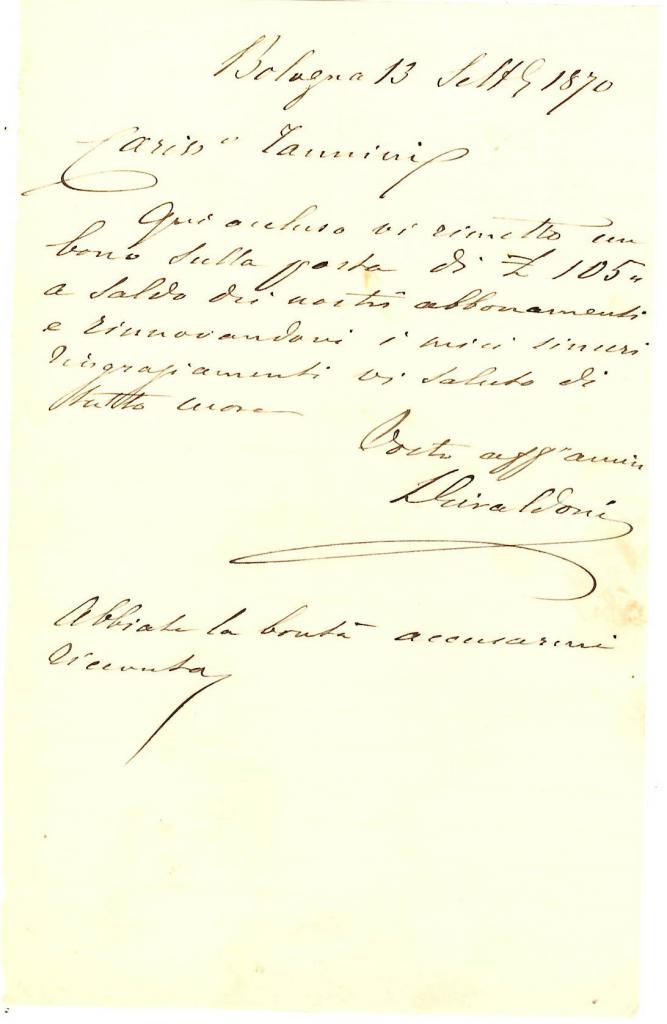 Bologna 13 Sett 1870
Cariss° Vannini
Qui occluso vi rimetto un
bono sulla posta di £ 105
a saldo dei nostri abbonamenti
e rinnovandovi i miei sinceri
ringraziamenti vi saluto di
tutto cuore
Vostro aff° amico
Abbiate la bontà accusarmi
ricevuta